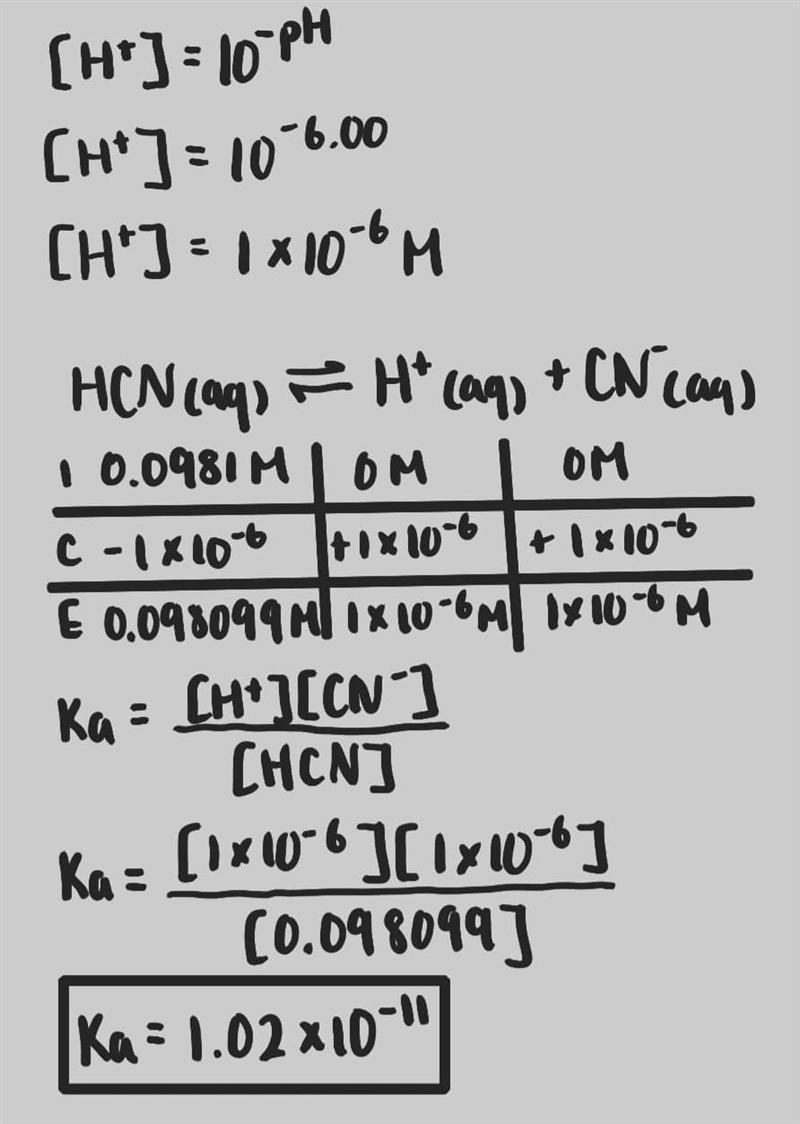 [H⁺] = 10⁻ᵖᴴ
[H⁺] = 10⁻⁶·⁰⁰
[H⁺] = 1 × 10⁻⁶ M
HCN (aq) ⇌ H⁺ (aq) + CN⁻ (aq)
I 0.0981 M | 0 M | 0 M
C - 1 × 10⁻⁶ | + 1 × 10⁻⁶ | + 1 × 10⁻⁶
E 0.098099 M | 1 × 10⁻⁶ M | 1 × 10⁻⁶ M
Ka = [H⁺][CN⁻] / [HCN]
Ka = [1 × 10⁻⁶][1 × 10⁻⁶] / [0.098099]
Ka = 1.02 × 10⁻¹¹